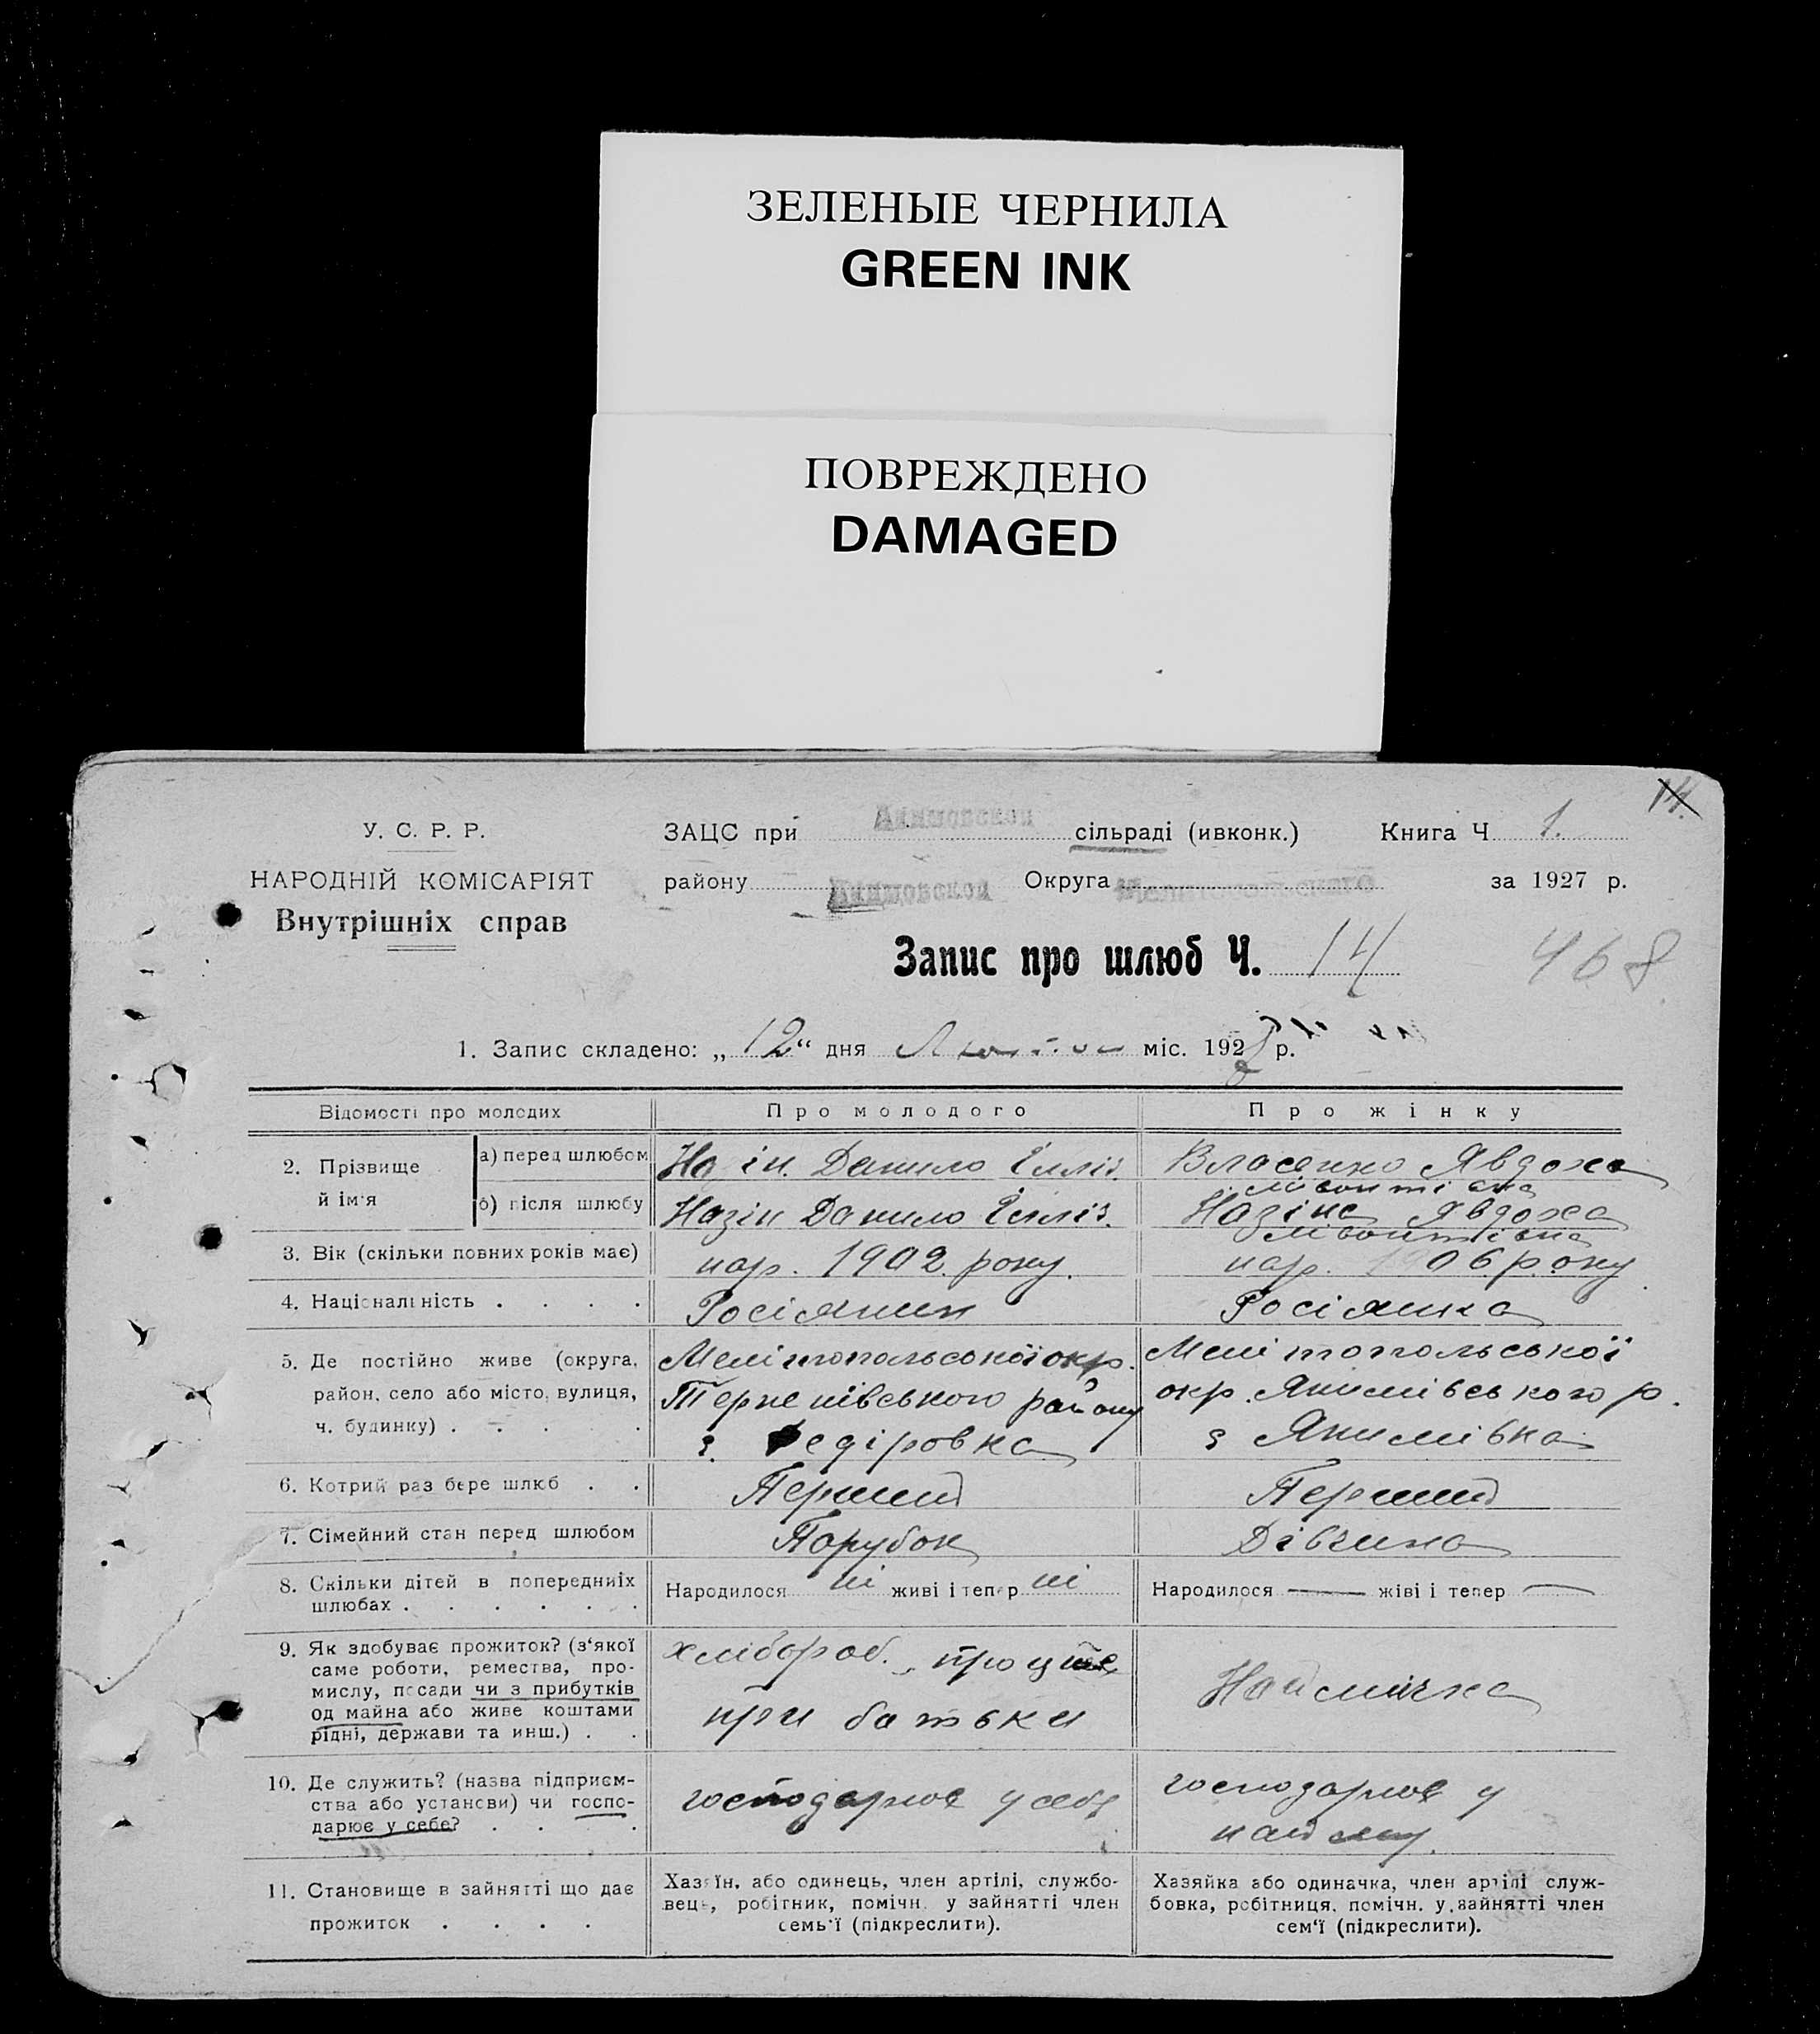 ЗЕЛЕНЫЕ ЧЕРНИЛА
GREEN INK
ПОВРЕЖДЕНО
DAMAGED
14.
У. С. Р. Р.
ЗАЦС при Акимовской сільраді (ивконк.) Книга Ч 1.
НАРОДНІЙ КОМІСАРІЯТ
району Акимовской Округа за 1927 р.
Внутрішніх справ
Запис про шлюб Ч. 14
468
1. Запис складено: „12“ дня Лютого міс. 192 р.
Відомості про молодих
Про молодого
Про жінку
2. Прізвище й ім'я
а) перед шлюбом
Назін Данило
Власенко Явдоха
б) після шлюбу
Назін Данило
Назіна Явдоха
3. Вік (скільки повних років має)
нар. 1902 року.
нар. 1906 року
4. Національність . . . .
Росіянин
Росіянка
5. Де постійно живе (округа,
район, село або місто, вулиця,
ч. будинку) . . . .
Мелітопольської окр.
Терпенівського району
с. Федіровка
Мелітопольської
окр. Якимівського р.
с Якимівка
6. Котрий раз бере шлюб . .
Перший
Перший
7. Сімейний стан перед шлюбом
Парубок
Дівчина
8. Скільки дітей в попередниіх
шлюбах . . . . . .
Народилося ні живі і тепер ні
Народилося — жіві і тепер —
9. Як здобуває прожиток? (з'якої
саме роботи, ремества, про-
мислу, посади чи з прибутків
од майна або живе коштами
рідні, держави та инш.) . .
хлібороб.
при батьки
Наймичка
10. Де служить? (назва підприєм-
ства або установи) чи госпо-
дарює у себе? . . .
господарює у себе
господарює у
найму.
11. Становище в зайнятті що дає
прожиток . . . .
Хазяїн, або одинець, член артілі, службо-
вець, робітник, помічн. у зайнятті член
семь'ї (підкреслити).
Хазяйка або одиначка, член артілі служ-
бовка, робітниця, помічн. у зайнятті член
сем'ї (підкреслити).